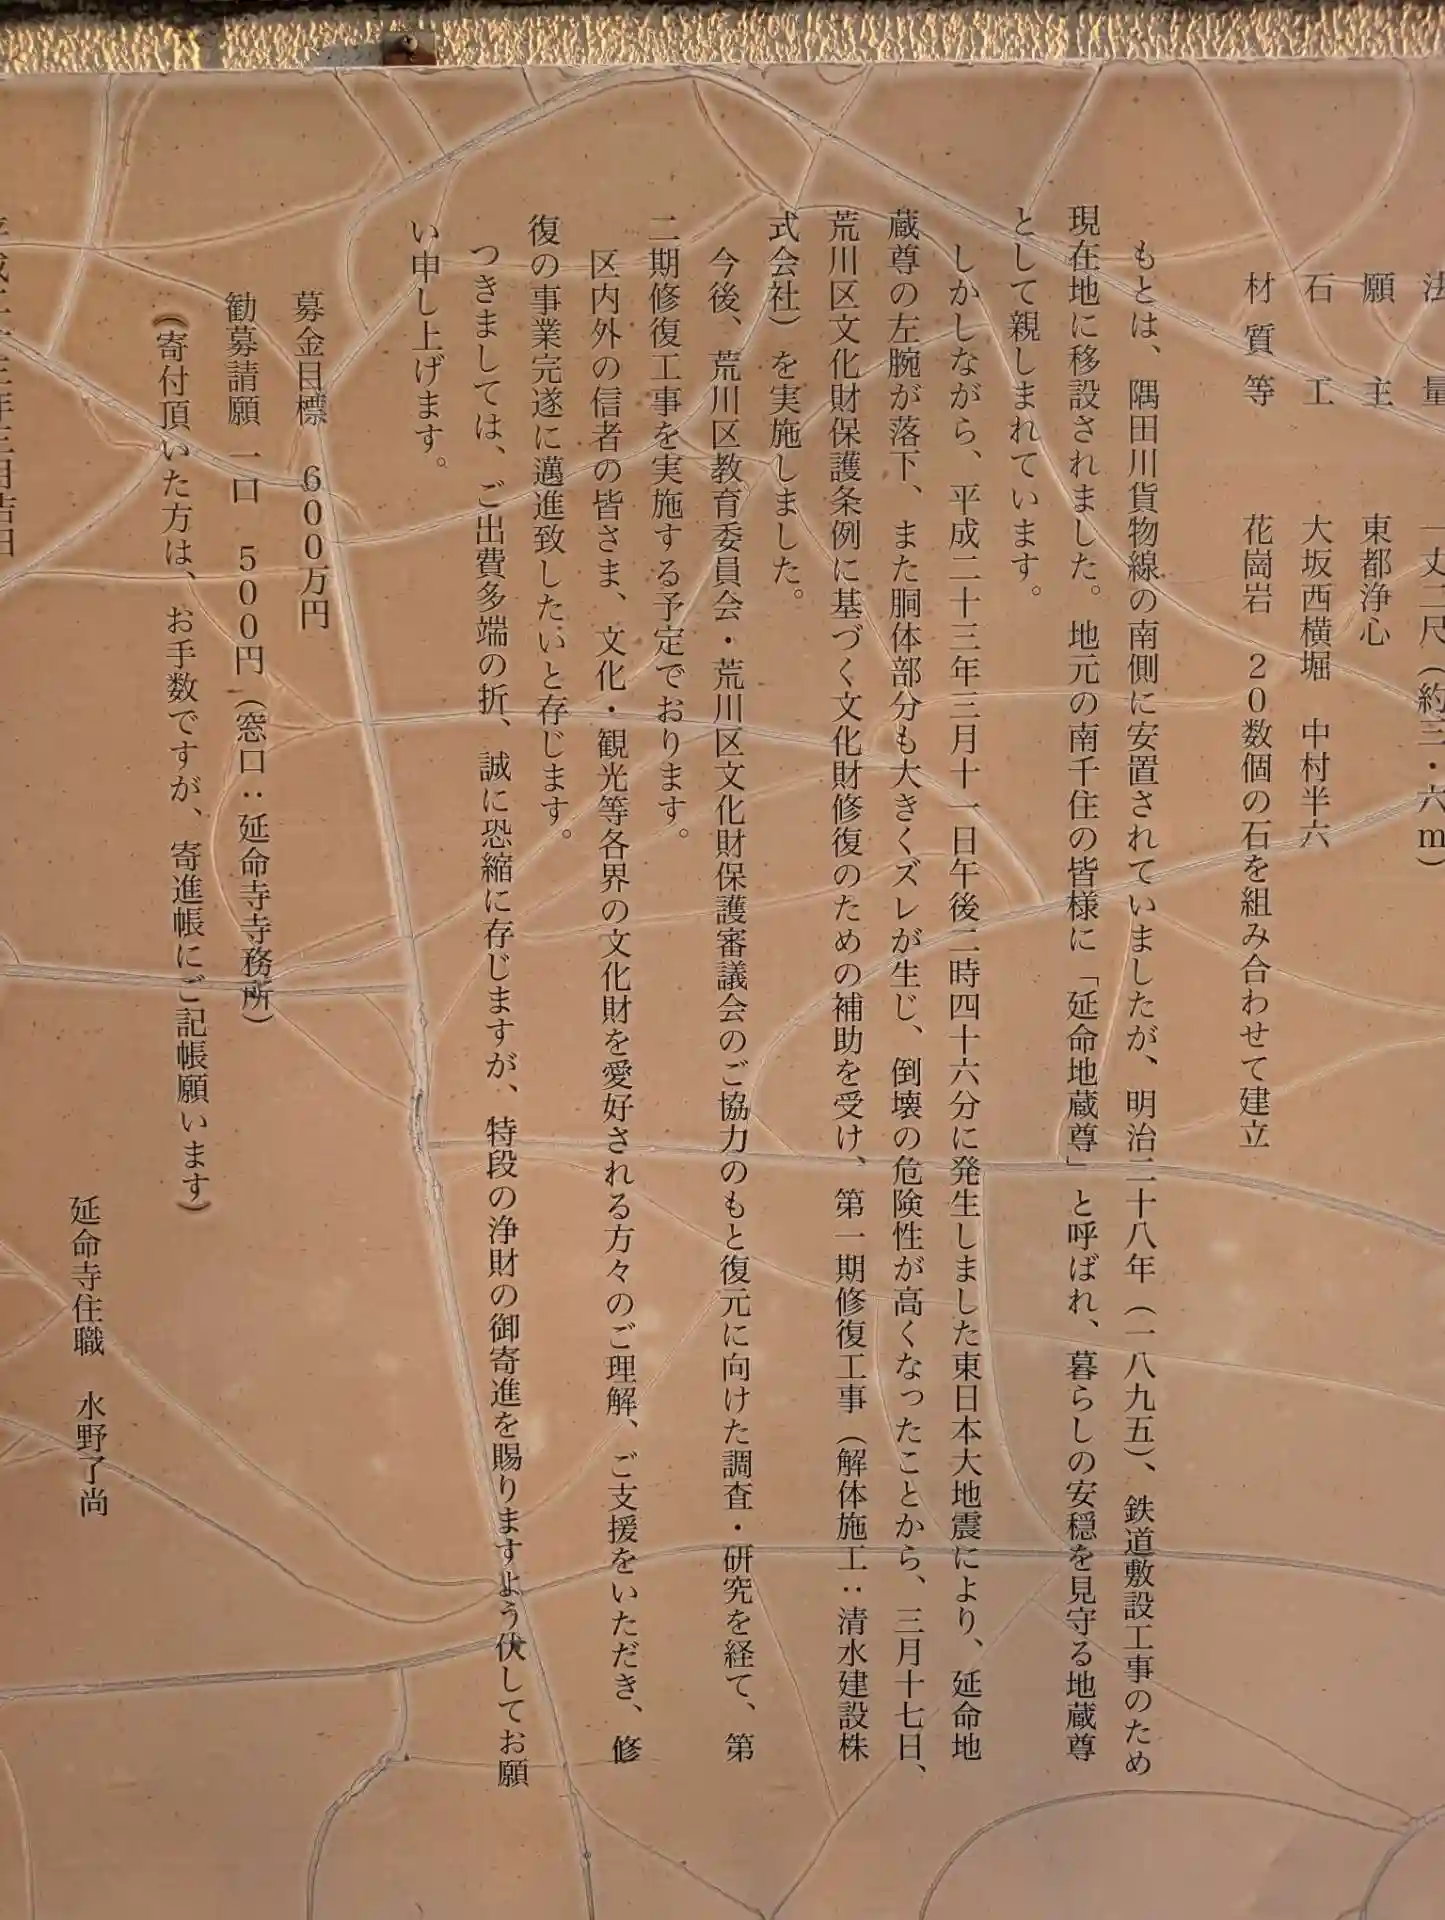 法　量　一丈二尺（約三・六m）
願　主　東都浄心
石　工　大坂西横堀　中村半六
材質等　花崗岩　２０数個の石を組み合わせて建立
もとは、隅田川貨物線の南側に安置されていましたが、明治二十八年（一八九五）、鉄道敷設工事のため
現在地に移設されました。地元の南千住の皆様に「延命地蔵尊」と呼ばれ、暮らしの安穏を見守る地蔵尊
として親しまれています。
しかしながら、平成二十三年三月十一日午後二時四十六分に発生しました東日本大地震により、延命地
蔵尊の左腕が落下、また胴体部分も大きくズレが生じ、倒壊の危険性が高くなったことから、三月十七日、
荒川区文化財保護条例に基づく文化財修復のための補助を受け、第一期修復工事（解体施工：清水建設株
式会社）を実施しました。
今後、荒川区教育委員会・荒川区文化財保護審議会のご協力のもと復元に向けた調査・研究を経て、第
二期修復工事を実施する予定でおります。
区内外の信者の皆さま、文化・観光等各界の文化財を愛好される方々のご理解、ご支援をいただき、修
復の事業完遂に邁進致したいと存じます。
つきましては、ご出費多端の折、誠に恐縮に存じますが、特段の浄財の御寄進を賜りますよう伏してお願
い申し上げます。
募金目標　６００万円
勧募請願　一口　５００円（窓口：延命寺寺務所）
（寄付頂いた方は、お手数ですが、寄進帳にご記帳願います）
延命寺住職　水野了尚